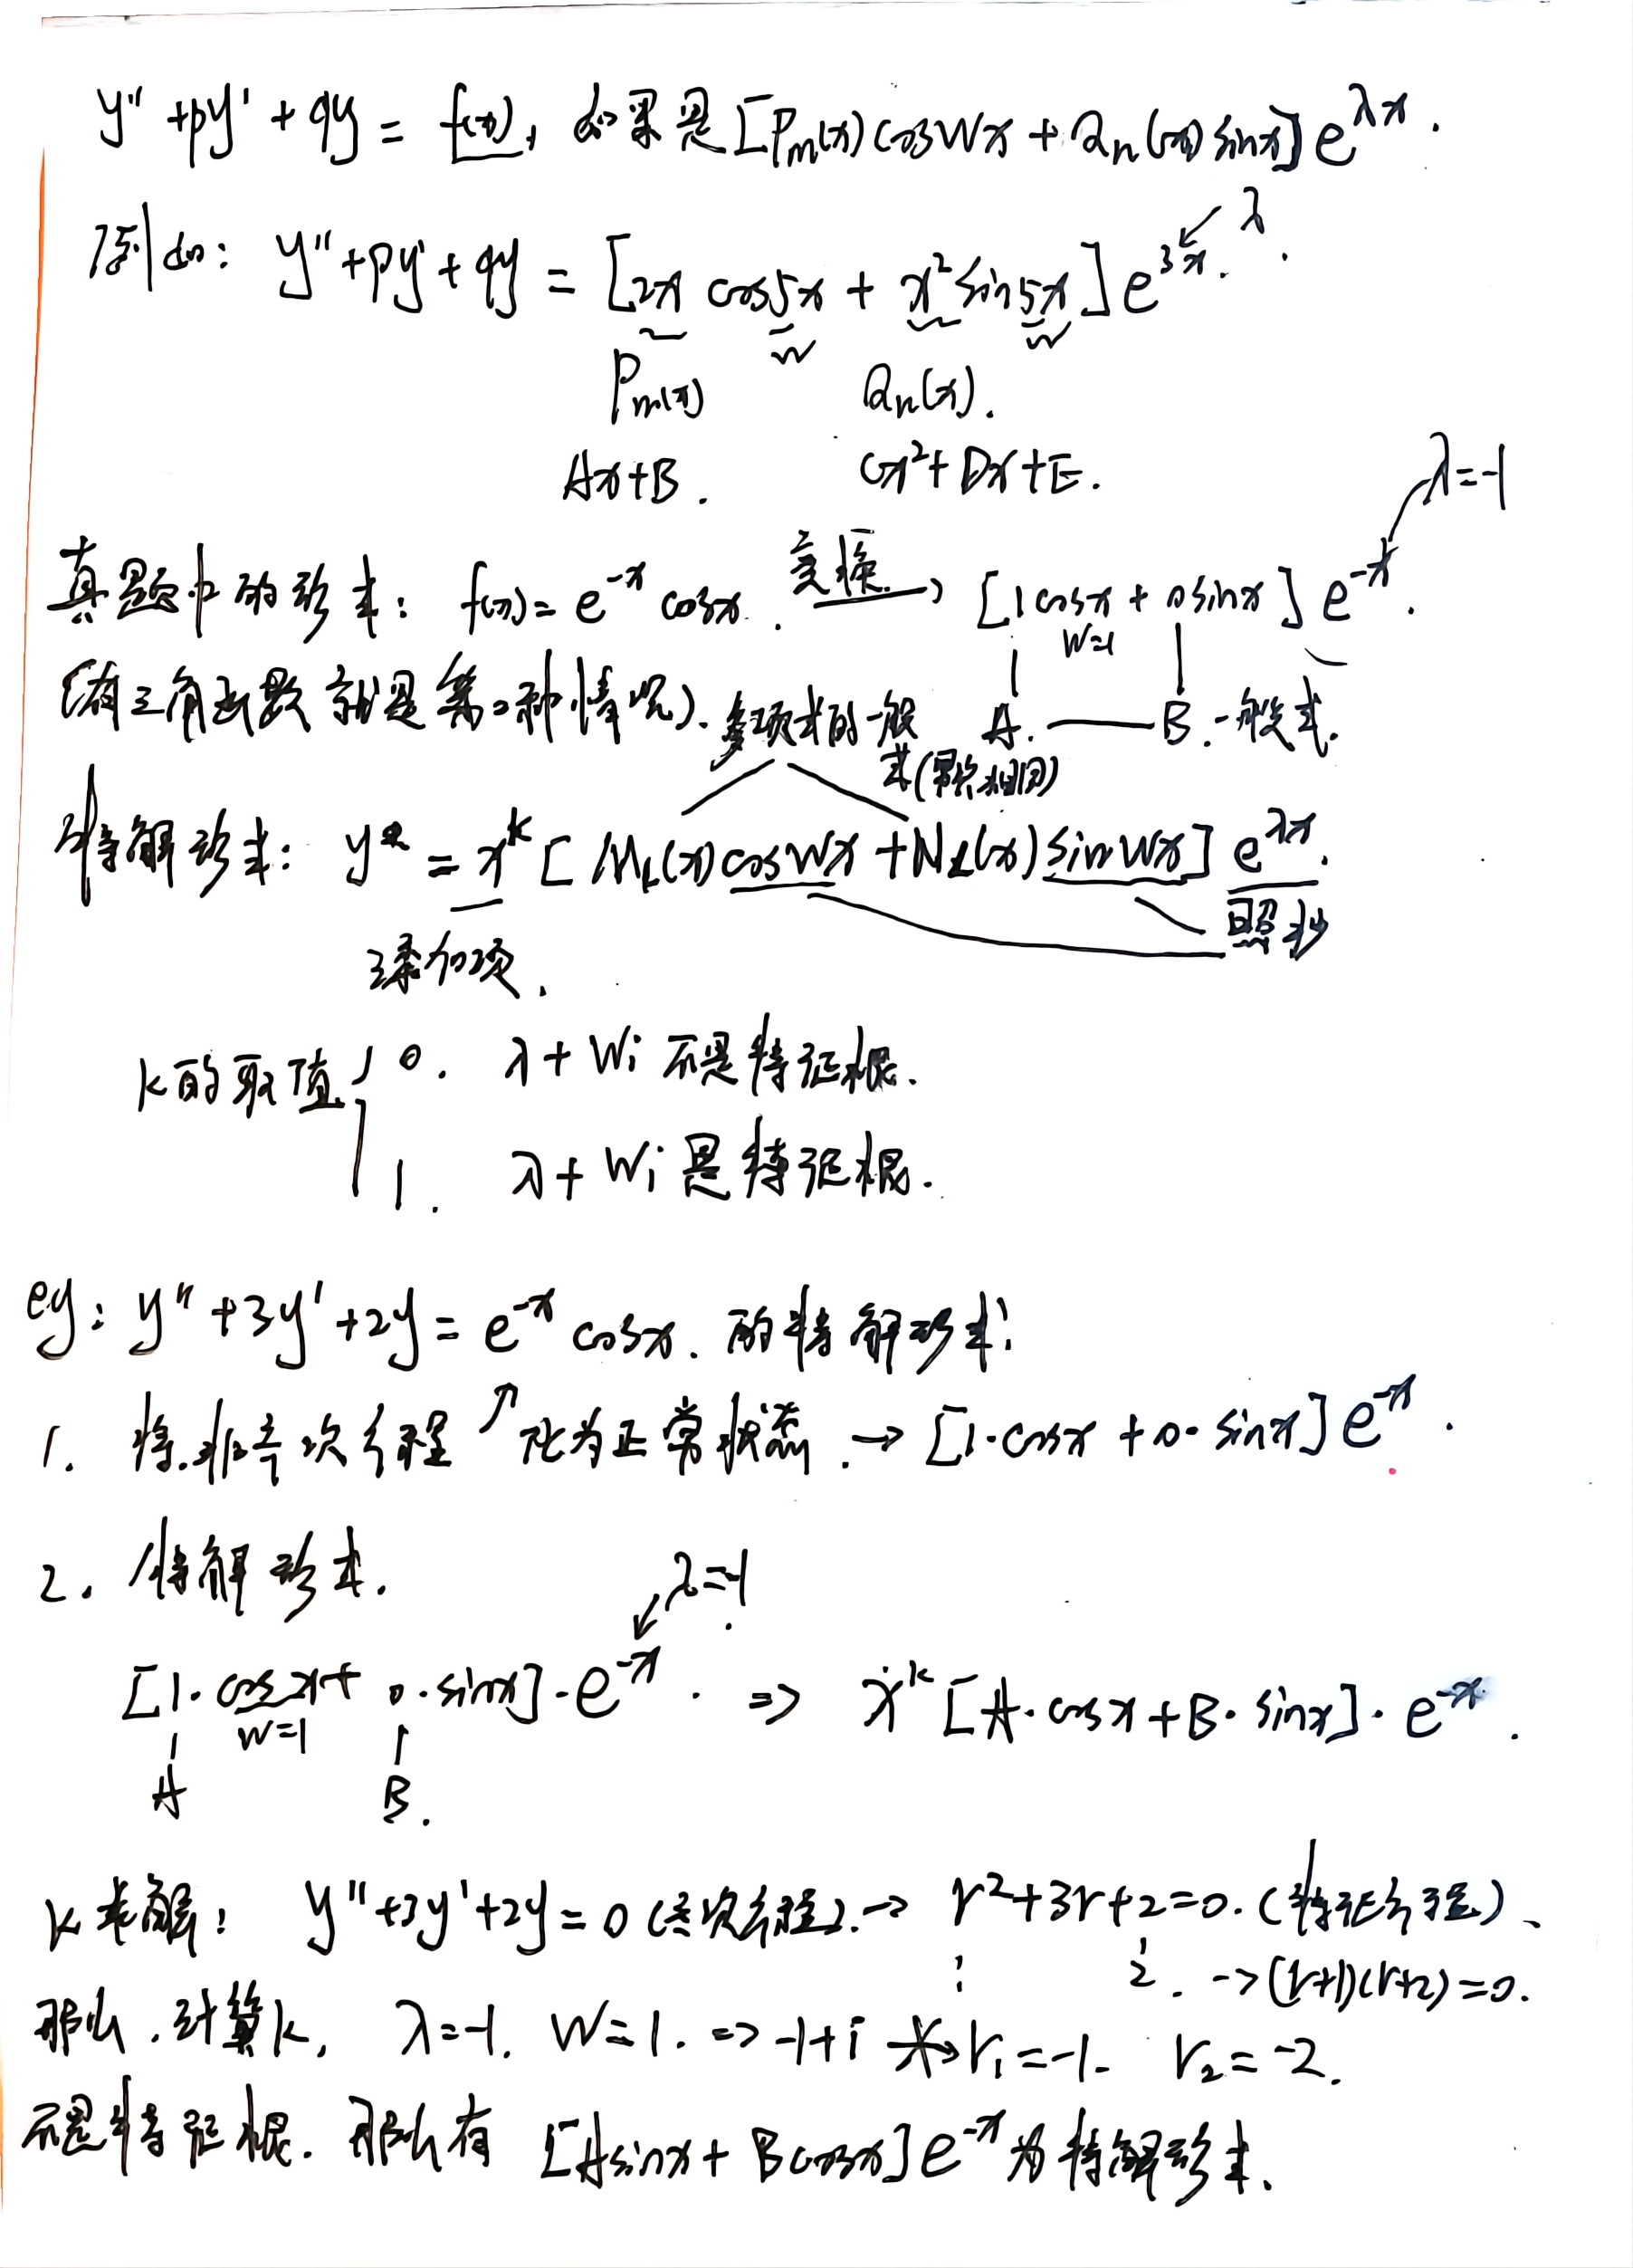 y'' + py' + qy = f(x), 如果是[Pm(x)cosWx + Qn(x)sinx]e^{λx}.
λ
例如: y'' + py' + qy = [2x cos5x + x²sin5x]e^{3x}.
W W
Pm(x) Qn(x).
Ax+B. Cx²+Dx+E.
λ=-1
真题中的形式: f(x)= e^{-x} cosx. 变换→ [1cosx + 0sinx] e^{-x}.
W=1
(有三角函数就是第二种情况). 多项式的一般 A. — B. 一般式.
式(照抄相同)
特解形式: y* = x^k [M_L(x)cosWx + N_L(x)sinWx] e^{λx}.
照抄
添加项.
k的取值 { 0. λ+Wi 不是特征根.
1. λ+Wi 是特征根.
eg: y'' + 3y' + 2y = e^{-x} cosx. 的特解形式:
1. 将非齐次方程↗化为正常状态. → [1·cosx + 0·sinx]e^{-x}.
2. 特解形式.
λ=-1
[1·cosx + 0·sinx]·e^{-x}. => x^k[A·cosx + B·sinx]·e^{-x}.
W=1
A B.
k求解: y''+3y'+2y=0 (齐次方程).→ r²+3r+2=0. (特征方程)、
1 2. ->(r+1)(r+2)=0.
那么.计算k, λ=-1. W=1. => -1+i r₁=-1. r₂=-2.
不是特征根. 那么有 [Asinx + Bcosx]e^{-x}为特解形式.